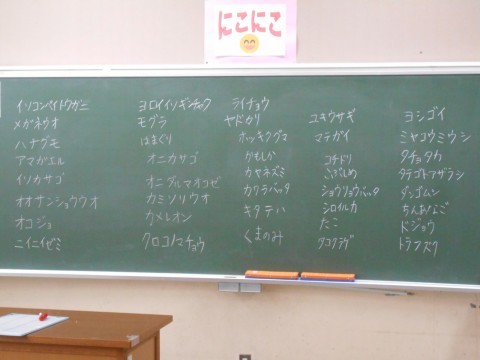 にこにこ
イソコンペイトウガニ
メガネウオ
ハナグモ
アマガエル
イソカサゴ
オオサンショウウオ
オコジョ
ニイニイゼミ
ヨロイイソギンチャク
モグラ
はまぐり
オニカサゴ
オニダルマオコゼ
カミソリウオ
カメレオン
クロコノマチョウ
ライチョウ
ヤドカリ
ホッキクグマ
かもしか
カヤネズミ
カワラバッタ
キタテハ
くまのみ
ユキウサギ
マテガイ
コチドリ
ショウリョウバッタ
シロイルカ
たこ
タコクラゲ
ヨシゴイ
ミヤコウミウシ
タテゴトアザラシ
ダンゴムシ
ちんあなご
ドジョウ
トラフズク